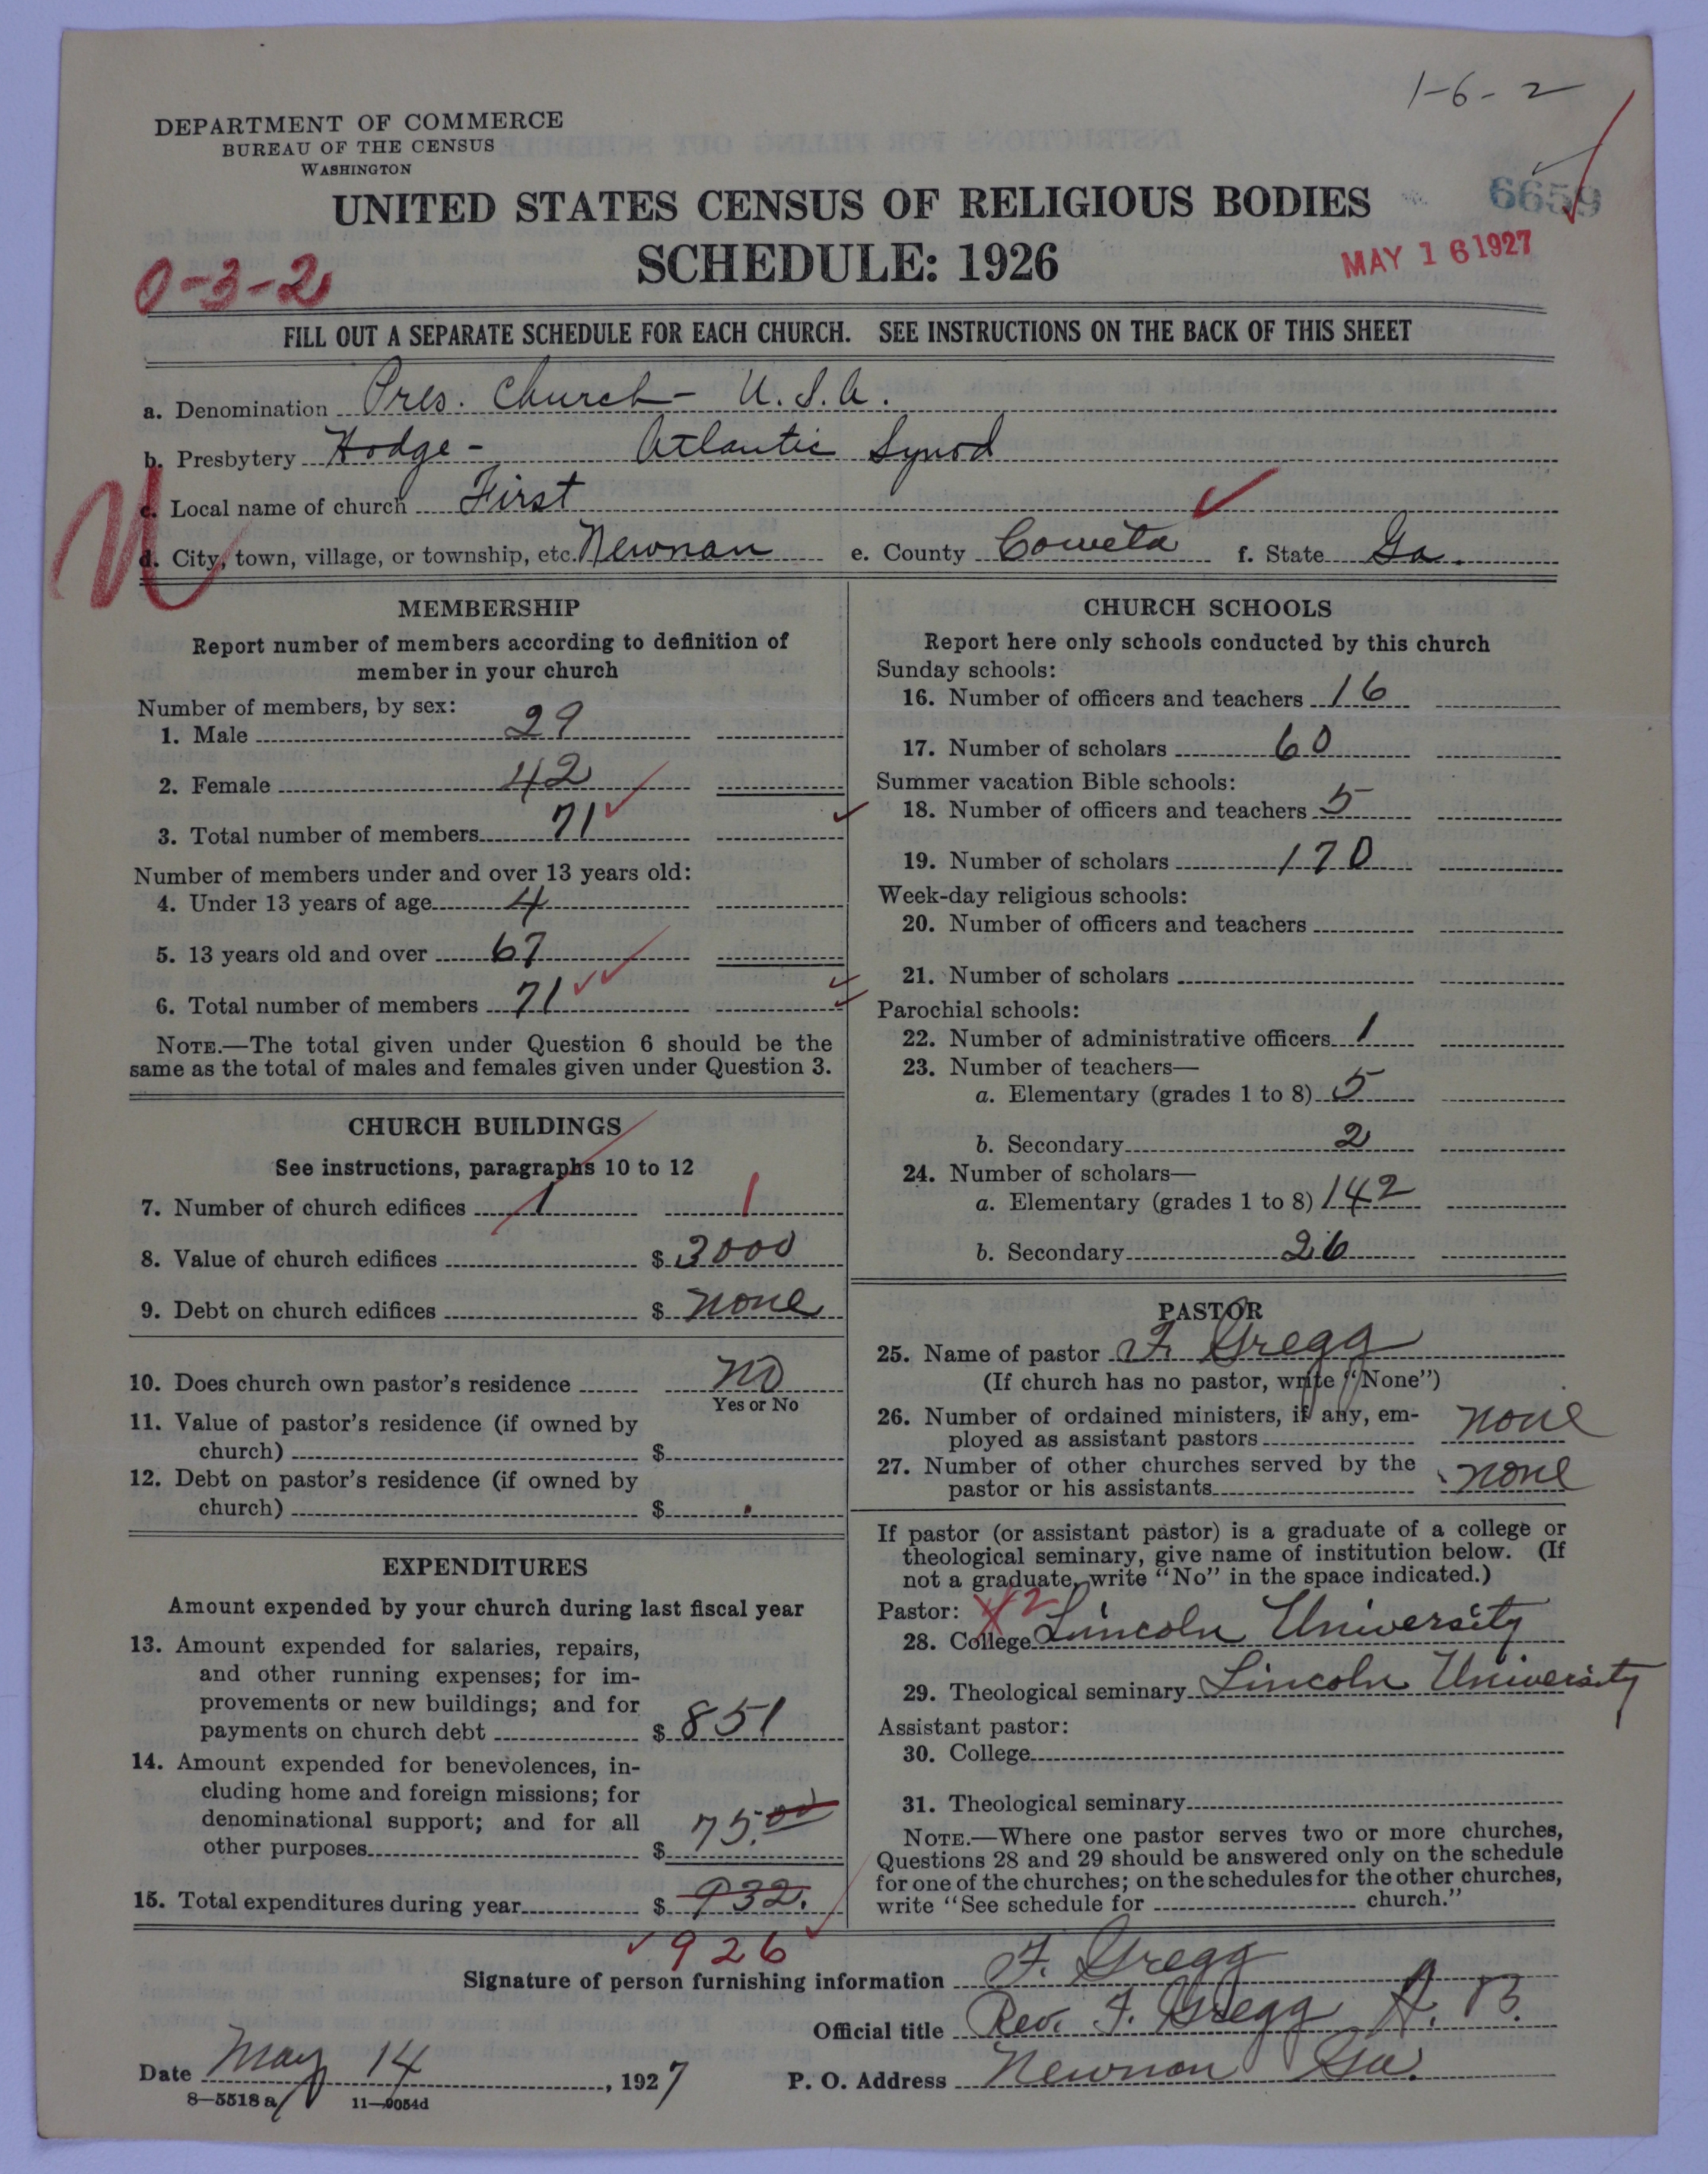 1-6-2
DEPARTMENT OF COMMERCE
BUREAU OF THE CENSUS
WASHINGTON
UNITED STATES CENSUS OF RELIGIOUS BODIES
6659
SCHEDULE: 1926
MAY 16 1927
0-3-2
FILL OUT A SEPARATE SCHEDULE FOR EACH CHURCH. SEE INSTRUCTIONS ON THE BACK OF THIS SHEET
a. Denomination Pres. Church - U.S.A.
b. Presbytery Hodge - Atlantic Synod
c. Local name of church First
N
d. City, town, village, or township, etc. Newnan e. County Coweta f. State Ga.
MEMBERSHIP
Report number of members according to definition of
member in your church
Number of members, by sex:
1. Male 29
2. Female 42
3. Total number of members 71
Number of members under and over 13 years old:
4. Under 13 years of age 4
5. 13 years old and over 67
6. Total number of members 71
NOTE.—The total given under Question 6 should be the
same as the total of males and females given under Question 3.
CHURCH BUILDINGS
See instructions, paragraphs 10 to 12
7. Number of church edifices 1 1
8. Value of church edifices $ 3000
9. Debt on church edifices $ none
10. Does church own pastor's residence no
Yes or No
11. Value of pastor's residence (if owned by
church) $
12. Debt on pastor's residence (if owned by
church) $
EXPENDITURES
Amount expended by your church during last fiscal year
13. Amount expended for salaries, repairs,
and other running expenses; for im-
provements or new buildings; and for
payments on church debt $ 851
14. Amount expended for benevolences, in-
cluding home and foreign missions; for
denominational support; and for all
other purposes $ 75.00
15. Total expenditures during year $ 932.
926
CHURCH SCHOOLS
Report here only schools conducted by this church
Sunday schools:
16. Number of officers and teachers 16
17. Number of scholars 60
Summer vacation Bible schools:
18. Number of officers and teachers 5
19. Number of scholars 170
Week-day religious schools:
20. Number of officers and teachers
21. Number of scholars
Parochial schools:
22. Number of administrative officers 1
23. Number of teachers—
a. Elementary (grades 1 to 8) 5
b. Secondary 2
24. Number of scholars—
a. Elementary (grades 1 to 8) 142
b. Secondary 26
PASTOR
25. Name of pastor F. Gregg
(If church has no pastor, write "None")
26. Number of ordained ministers, if any, em-
ployed as assistant pastors none
27. Number of other churches served by the
pastor or his assistants none
If pastor (or assistant pastor) is a graduate of a college or
theological seminary, give name of institution below. (If
not a graduate, write "No" in the space indicated.)
Pastor: X 2
28. College Lincoln University
29. Theological seminary Lincoln University
Assistant pastor:
30. College
31. Theological seminary
NOTE.—Where one pastor serves two or more churches,
Questions 28 and 29 should be answered only on the schedule
for one of the churches; on the schedules for the other churches,
write "See schedule for church."
Signature of person furnishing information F. Gregg
Official title Rev. F. Gregg A.B.
Date May 14, 1927 P. O. Address Newnan Ga.
8—5518 a 11—9054d